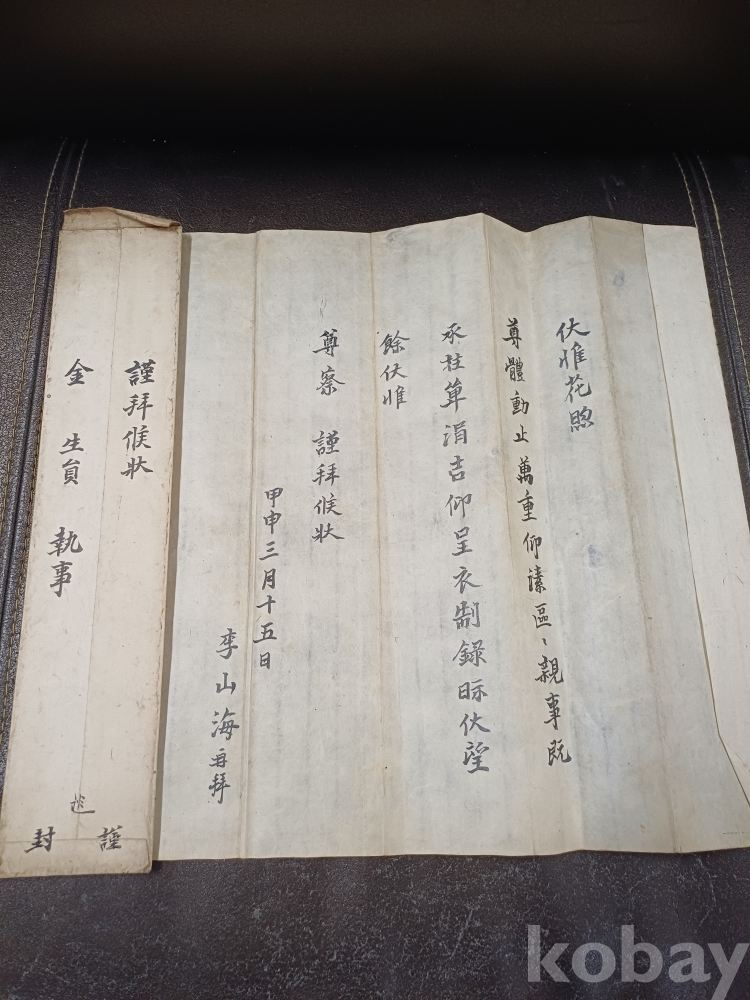 伏惟花煦
尊體動止萬重仰溸區〻親事旣
承柱單涓吉仰呈衣制錄眎伏望
餘伏惟
尊察 謹拜候狀
甲申三月十五日
李山海再拜
謹拜候狀
金 生員 執事
謹 封
kobay